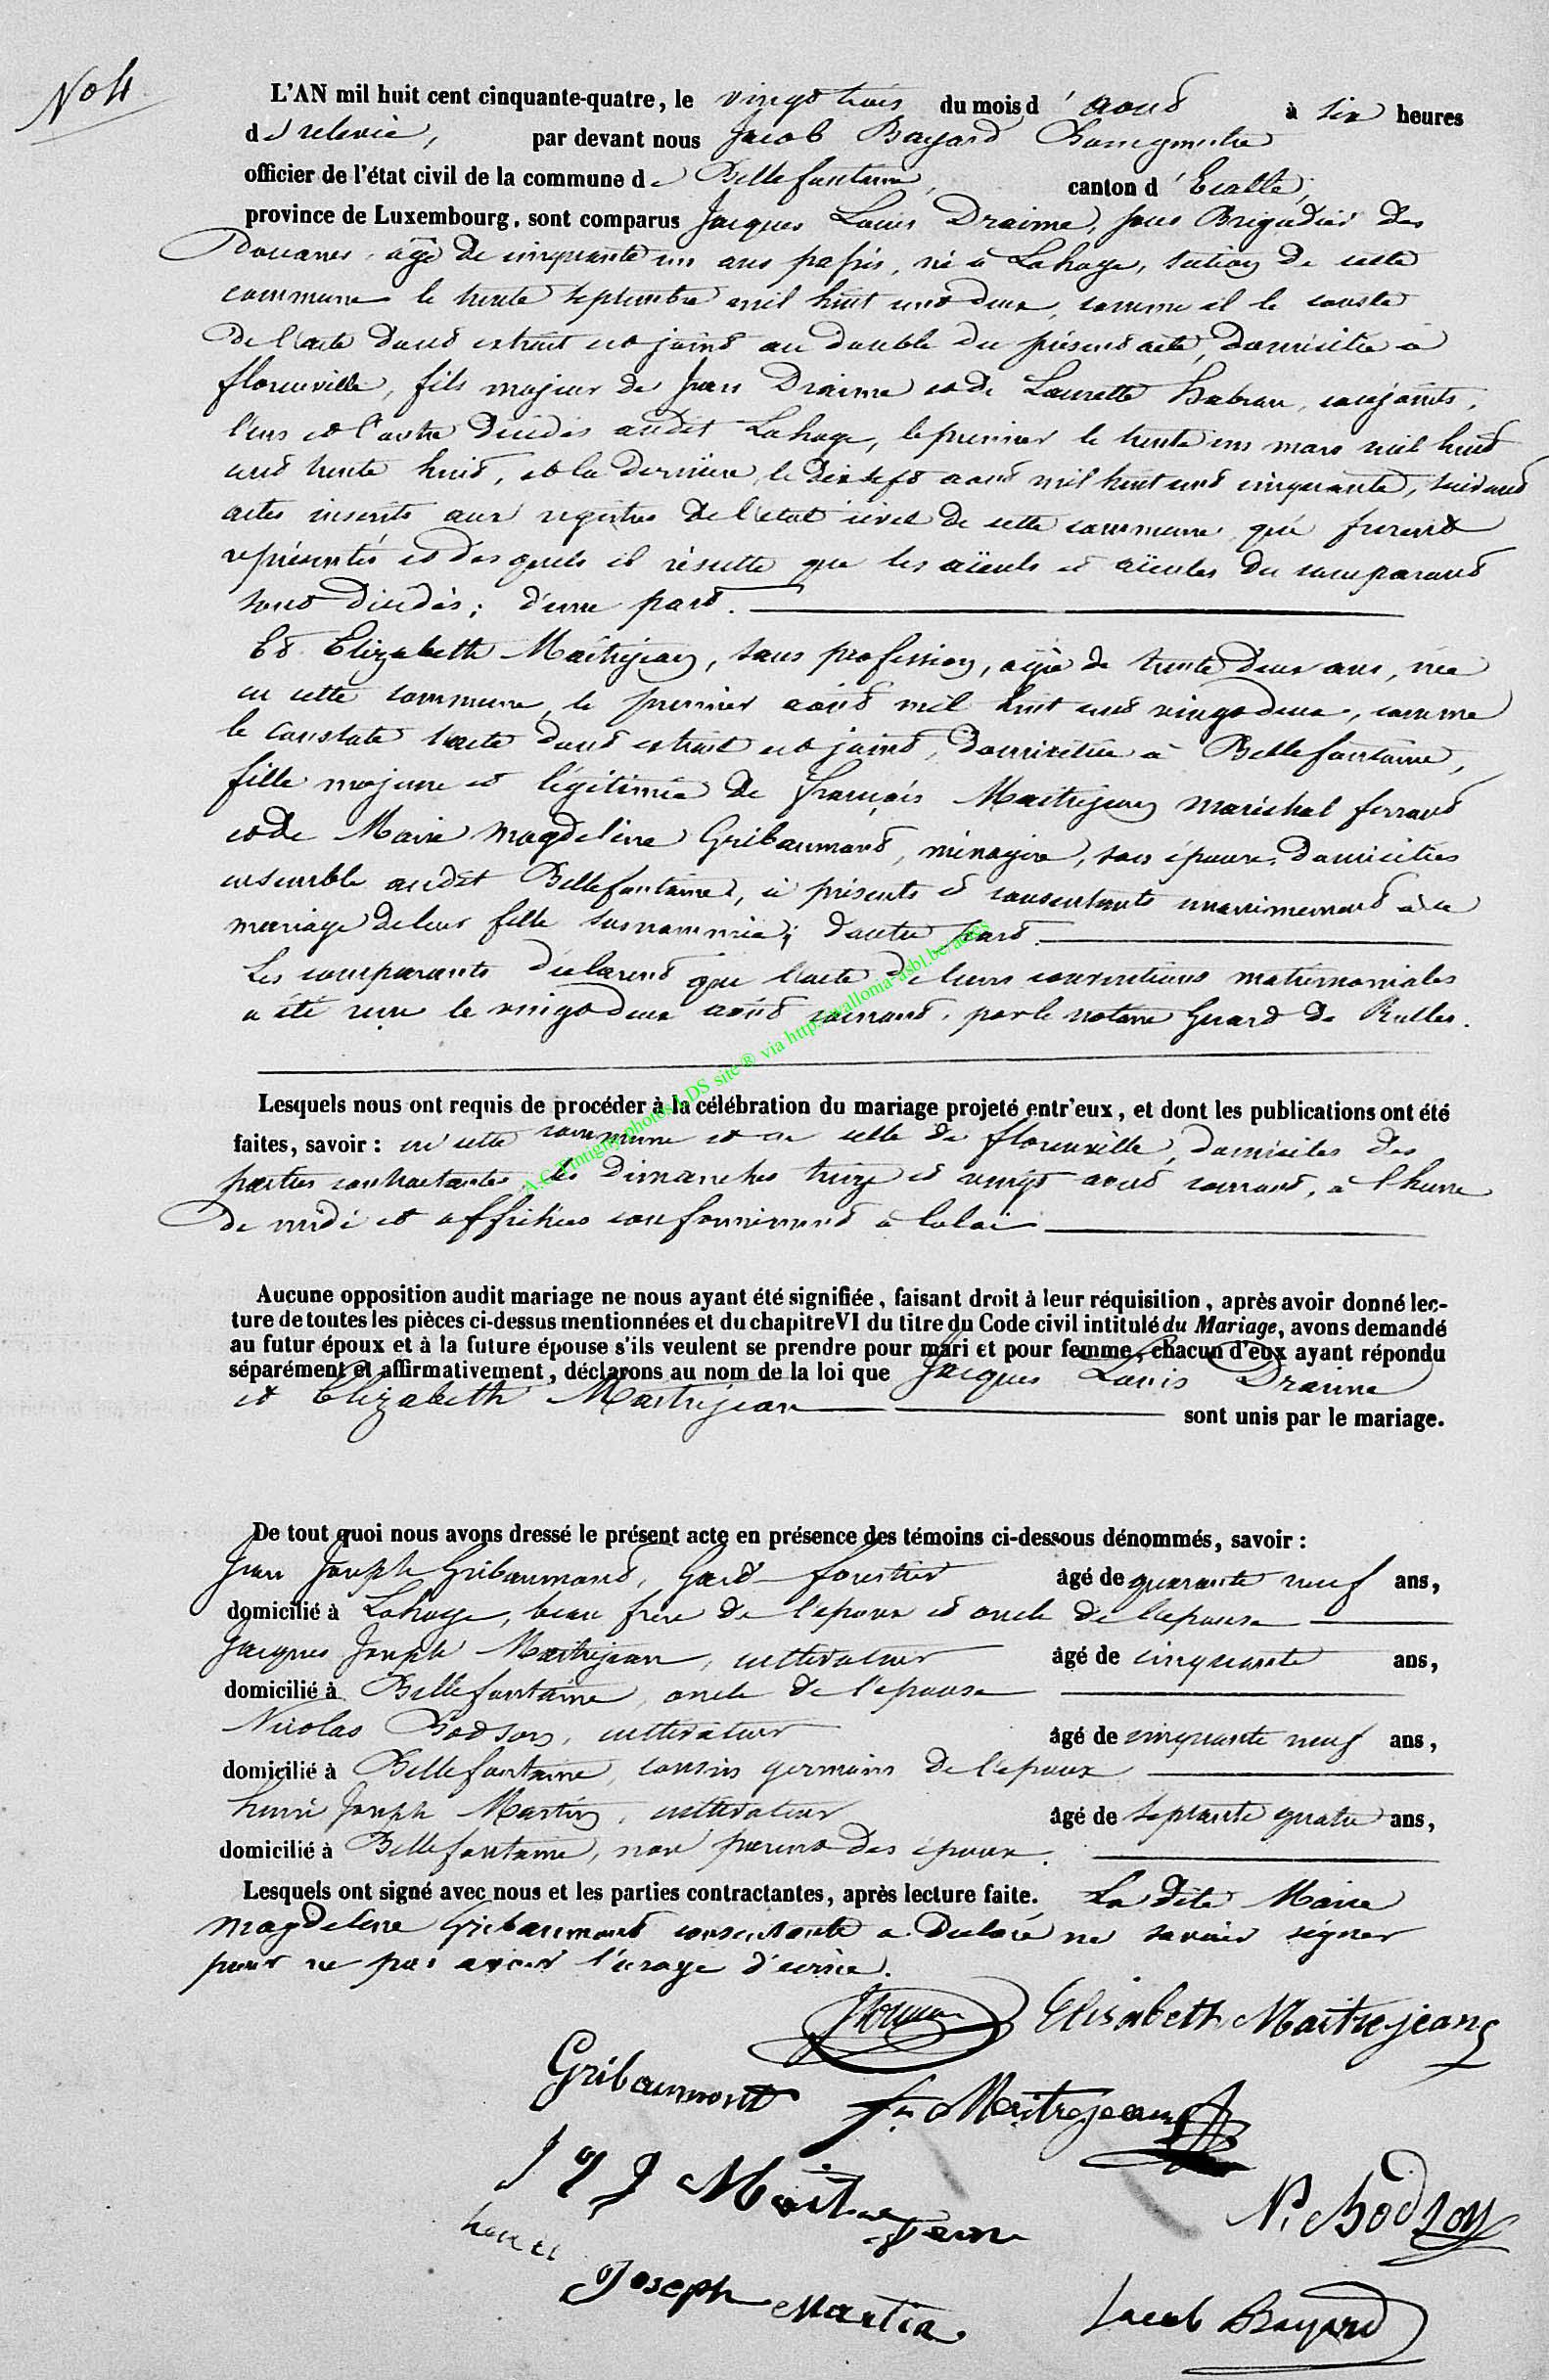 No 4
L'AN mil huit cent cinquante-quatre, le vingt trois du mois d'aout à six heures
de relevée, par devant nous Jacob Bayard Bourgmestre
officier de l'état civil de la commune de Bellefontaine, canton d'Etalle,
province de Luxembourg, sont comparus Jacques Louis Draime, sous Brigadier des
Douanes, âgé de cinquante un ans passés, né à Lahage, section de cette
commune le trente septembre mil huit cent deux, comme il le conste
de l'acte dont extrait est joint au double du présent acte, domicilié à
florenville, fils majeur de Jean Draime et de Laurette Habran, conjoints,
l'un et l'autre décédés audit Lahage, le premier le trente un mars mil huit
cent trente huit, et la dernière, le dix sept aout mil huit cent cinquante, suivant
actes inscrits aux registres de l'état civil de cette commune qui furent
représentés et desquels il résulte que les aïeuls et aïeules du comparant
sont décédés; d'une part.
Et Elizabeth Maitrejean, sans profession, agée de trente deux ans, née
en cette commune, le premier aout mil huit cent vingt deux, comme
le constate l'acte dont extrait est joint, domiciliée à Bellefontaine,
fille majeure et légitimée de françois Maitrejean maréchal ferrant
et de Marie Magdeleine Gribaumont, ménagère, son épouse, domiciliés
ensemble audit Bellefontaine, ci présents et consentants unanimement à ce
mariage de leur fille susnommée; d'autre part.
Les comparants déclarent que l'acte de leurs conventions matrimoniales
a été reçu le vingt deux août courant, par le notaire Guard de Rulles.
A.C. Tintigny photos LDS site® via http://wallonia-asbl.be/
Lesquels nous ont requis de procéder à la célébration du mariage projeté entr'eux, et dont les publications ont été
faites, savoir : en cette commune et en celle de florenville, domiciles des
parties contractantes, les Dimanches treize et vingt aout courant, à l'heure
de midi et affichées conformément à la loi
Aucune opposition audit mariage ne nous ayant été signifiée, faisant droit à leur réquisition, après avoir donné lec-
ture de toutes les pièces ci-dessus mentionnées et du chapitre VI du titre du Code civil intitulé du Mariage, avons demandé
au futur époux et à la future épouse s'ils veulent se prendre pour mari et pour femme, chacun d'eux ayant répondu
séparément et affirmativement, déclarons au nom de la loi que Jacques Louis Draime
et Elizabeth Maitrejean sont unis par le mariage.
De tout quoi nous avons dressé le présent acte en présence des témoins ci-dessous dénommés, savoir :
Jean Joseph Gribaumont, Gard forestier âgé de quarante neuf ans,
domicilié à Lahage, beau frère de l'epoux et oncle de l'epouse
Jacques Joseph Maitrejean, cultivateur âgé de cinquante ans,
domicilié à Bellefontaine, oncle de l'epouse
Nicolas Bodson, cultivateur âgé de cinquante neuf ans,
domicilié à Bellefontaine, cousin germain de l'epoux
henri Joseph Martin, cultivateur âgé de septante quatre ans,
domicilié à Bellefontaine, non parent des époux.
Lesquels ont signé avec nous et les parties contractantes, après lecture faite. La dite Marie
Magdeleine Gribaumont consentante a déclaré ne savoir signer
pour ne pas avoir l'usage d'écrire.
Elisabeth Maitrejean
Gribaumont fs Maitrejean
J J Maitrejean
N. Bodson
henri
Joseph Martin
Jacob Bayard